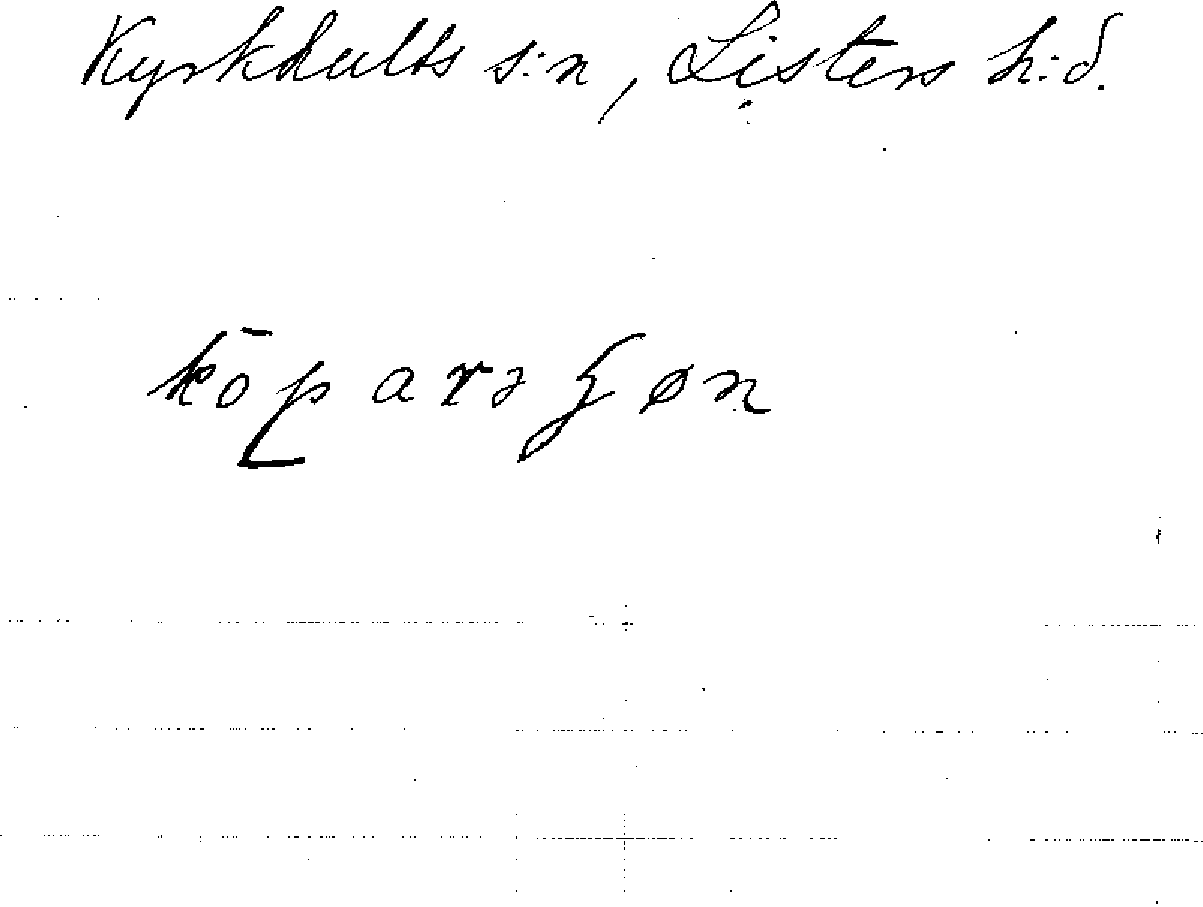 Kyrkhults s:n, Listers h:d.
kōparəʃøn